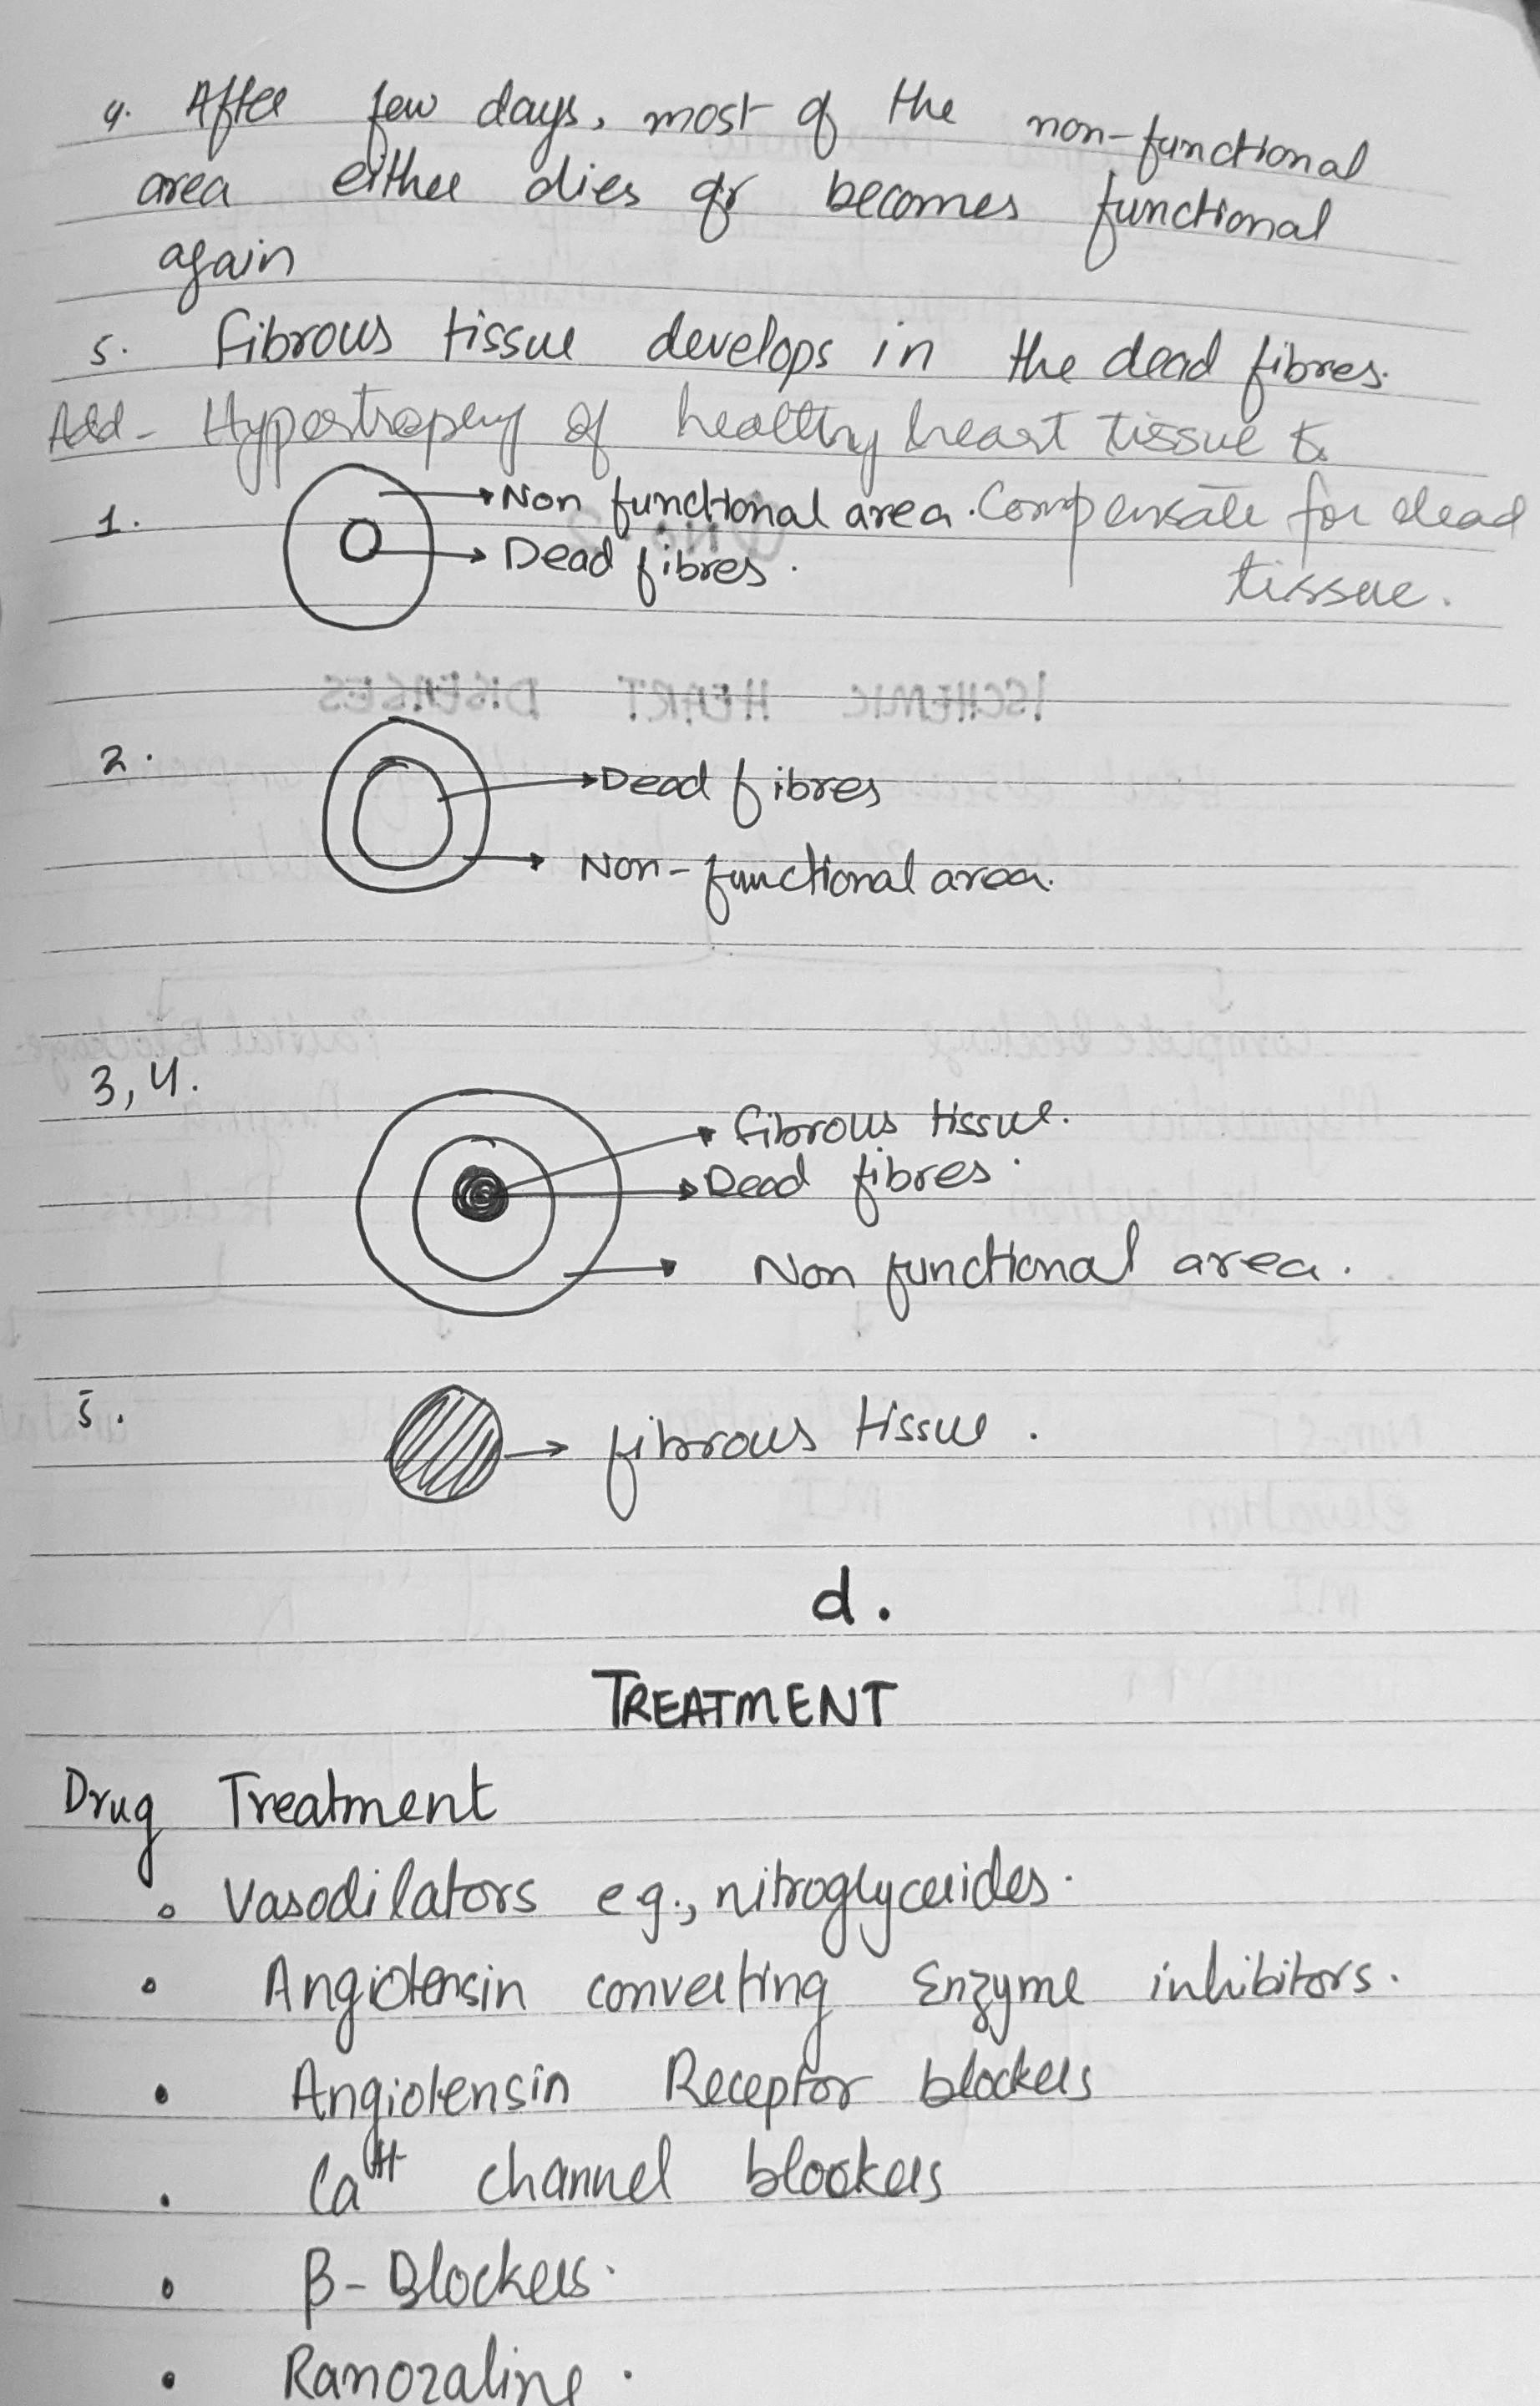 4. After few days, most of the non-functional
area either dies or becomes functional
again
5. Fibrous tissue develops in the dead fibres.
Add- Hypertropey of healthy heart tissue to
compensate for dead
tissue.
1. Non functional area.
Dead fibres.
2. Dead fibres
Non-functional area.
3,4. fibrous tissue.
Dead fibres.
Non functional area.
5. fibrous tissue.
d.
TREATMENT
Drug Treatment
• Vasodilators eg., nitroglycerides.
• Angiotensin converting Enzyme inhibitors.
• Angiotensin Receptor blockers
• Ca++ channel blockers
• β-Blockers.
• Ranozaline.